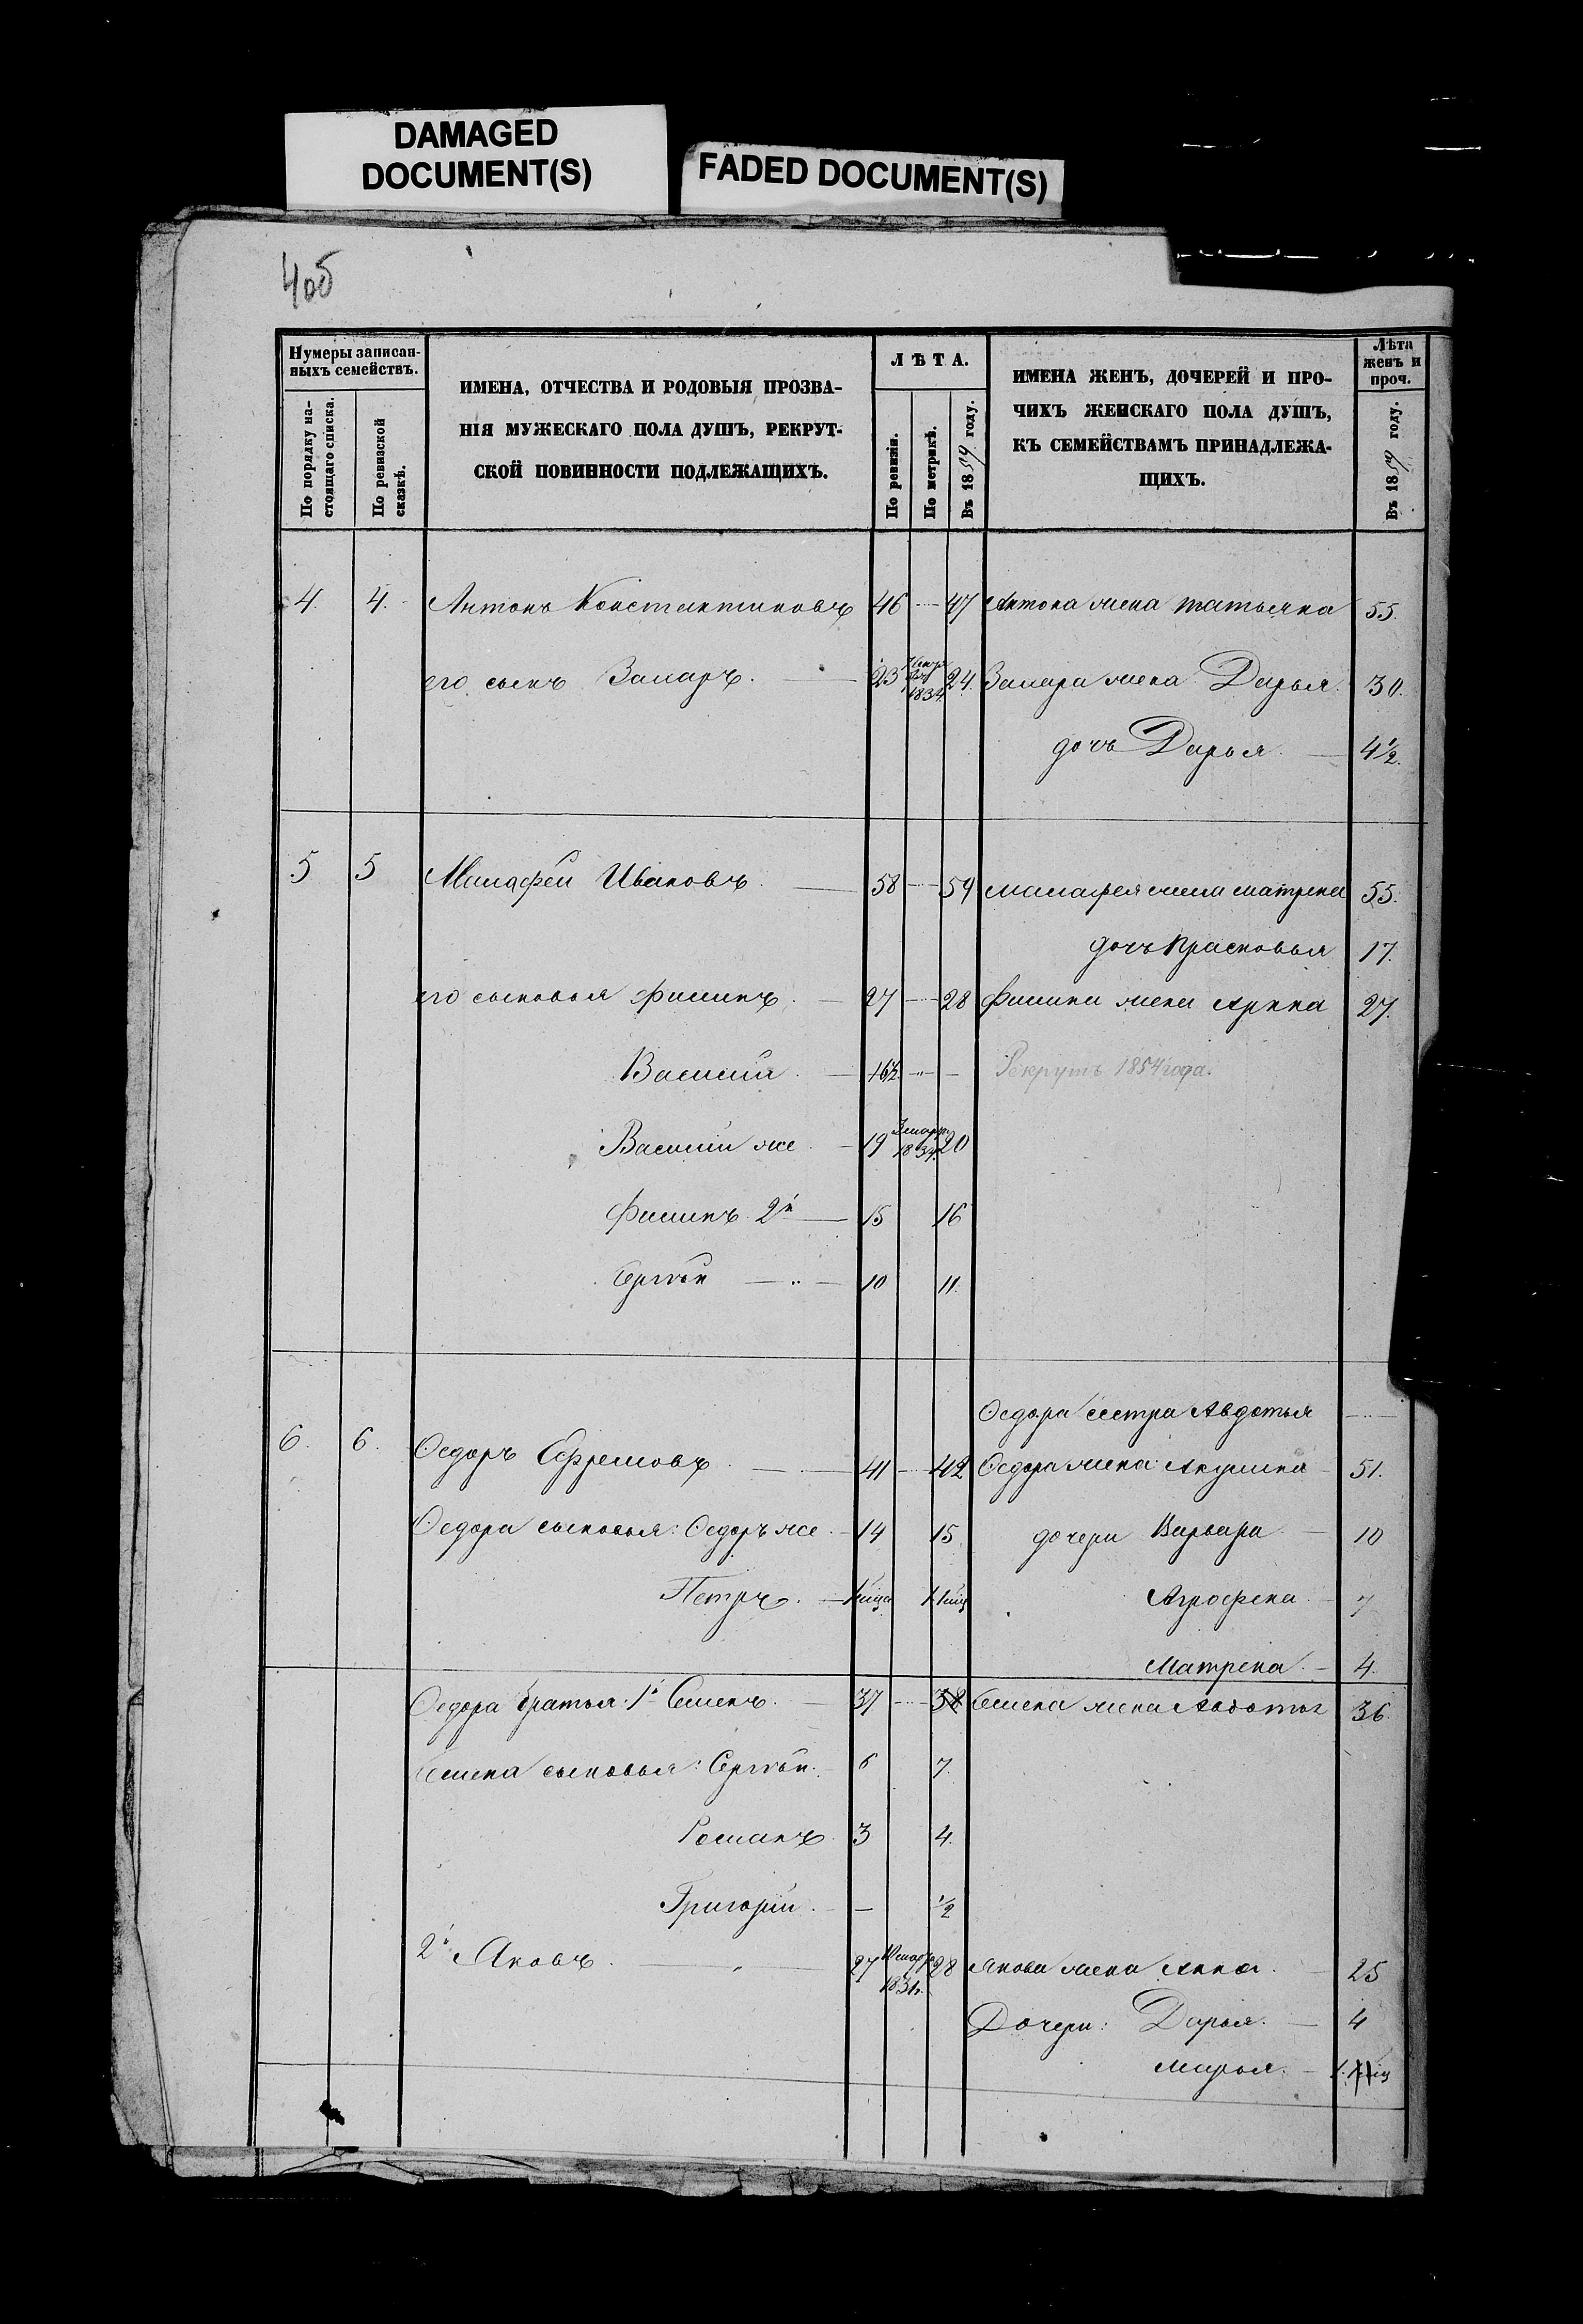 DAMAGED
DOCUMENT(S)
FADED DOCUMENT(S)
4об
Нумеры записан-
ныхъ семействъ.
По порядку на-
стоящаго списка.
По ревизской
сказкѣ.
ИМЕНА, ОТЧЕСТВА И РОДОВЫЯ ПРОЗВА-
НІЯ МУЖЕСКАГО ПОЛА ДУШЪ, РЕКРУТ-
СКОЙ ПОВИННОСТИ ПОДЛЕЖАЩИХЪ.
ЛѢТА.
По ревизіи.
По метрикѣ.
Въ 1859 году.
ИМЕНА ЖЕНЪ, ДОЧЕРЕЙ И ПРО-
ЧИХЪ ЖЕНСКАГО ПОЛА ДУШЪ,
КЪ СЕМЕЙСТВАМЪ ПРИНАДЛЕЖА-
ЩИХЪ.
Лѣта
женъ и
проч.
Въ 1859 году.
4. 4. Антонъ Константиновъ 46 47 Антона жена татьяна 55.
его сынъ Захаръ. 23 1834 24. Захара жена Дарья. 30.
дочь Дарья. 4 1/2.
5 5 Малафей Ивановъ. 58 59 малафея жена матрена 55.
дочь Прасковья 17.
его сыновья Филипъ. 27 28 Филипа жена Арина 27.
Василій. 16 1/2 Рекрутъ 1854 года.
Василій же 19 20
Филипъ 2й 15 16
Сергѣй 10 11.
Ѳедора сестра Авдотья
6. 6. Ѳедоръ Ефремовъ. 41 42 Ѳедора жена: Акулина 51.
Ѳедора сыновья: Ѳедоръ же. 14 15 дочери Варвара 10
Петръ. Агрофена. 7
Матрена. 4.
Ѳедора братья: 1й Семенъ. 37 38 Семена жена Авдотья 36.
Семена сыновья: Сергѣй. 6 7.
Романъ 3 4.
Григорій. — 1/2
2й Яковъ. 27 28 Якова жена Анна. 25
Дочери: Дарья. 4
Марья.